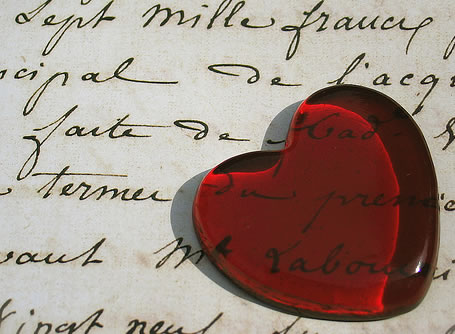 Sept mille francs
cipal de l'acq
faite de Mad
termes du premie
vant Mr Labou
Vingt neuf du